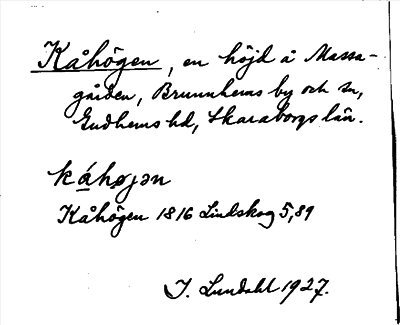 Kåhögen, en höjd å Massa-
gården, Brunnhems by och sn,
Gudhems hd, Skaraborgs län.
kåhøjən
Kåhögen 1816 Lindskog 5,89
I. Lundahl 1927.